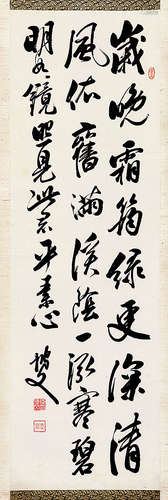 歲晚霜筠綠更深清
風依舊滿溪蔭一泓寒碧
明如鏡照見此君平素心